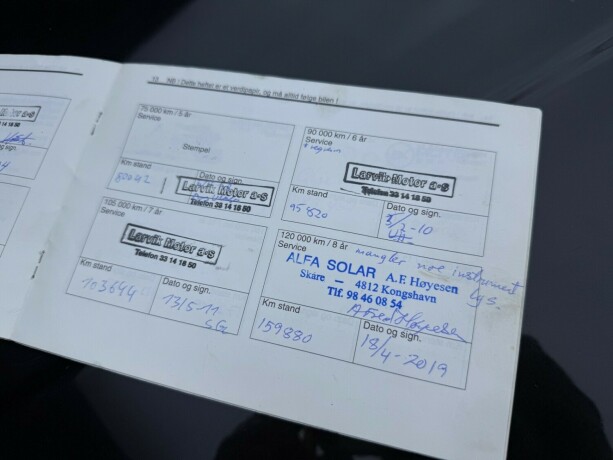 13 NB ! Dette heftet er et verdipapir, og må alltid følge bilen !
75 000 km / 5 år
Service
Stempel
Km stand
80042
Dato og sign.
Larvik Motor a-s
Telefon 33 14 18 50
90 000 km / 6 år
Service
Larvik Motor a-s
Telefon 33 14 18 50
Km stand
95820
Dato og sign.
-10
105 000 km / 7 år
Service
Larvik Motor a-s
Telefon 33 14 18 50
Km stand
103644
Dato og sign.
13/5-11
SG
120 000 km / 8 år
Service
mangler noe instrument
lys.
ALFA SOLAR A.F. Høyesen
Skåre — 4812 Kongshavn
Tlf. 98 46 08 54
Km stand
159880
Dato og sign.
18/4-2019
og sign.